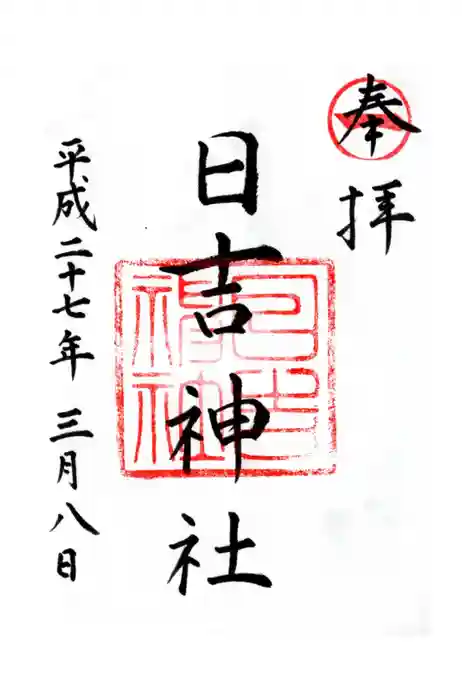 奉拝
日吉神社
平成二十七年 三月八日